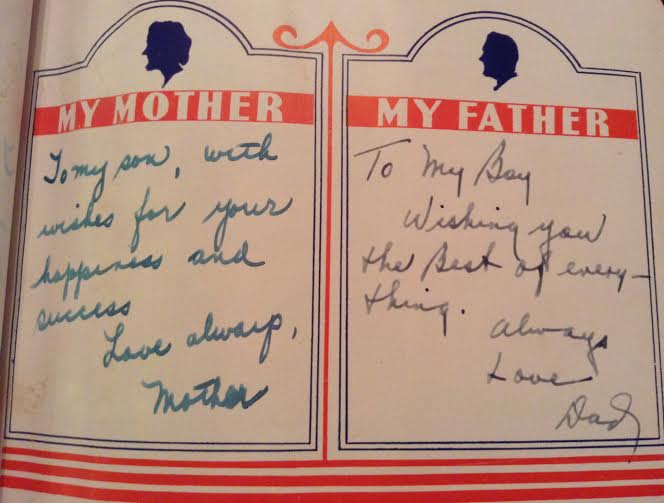 MY MOTHER
To my son, with
wishes for your
happiness and
success
Love always,
Mother
MY FATHER
To My Boy
Wishing you
the Best of every-
thing.
Always
Love
Dad